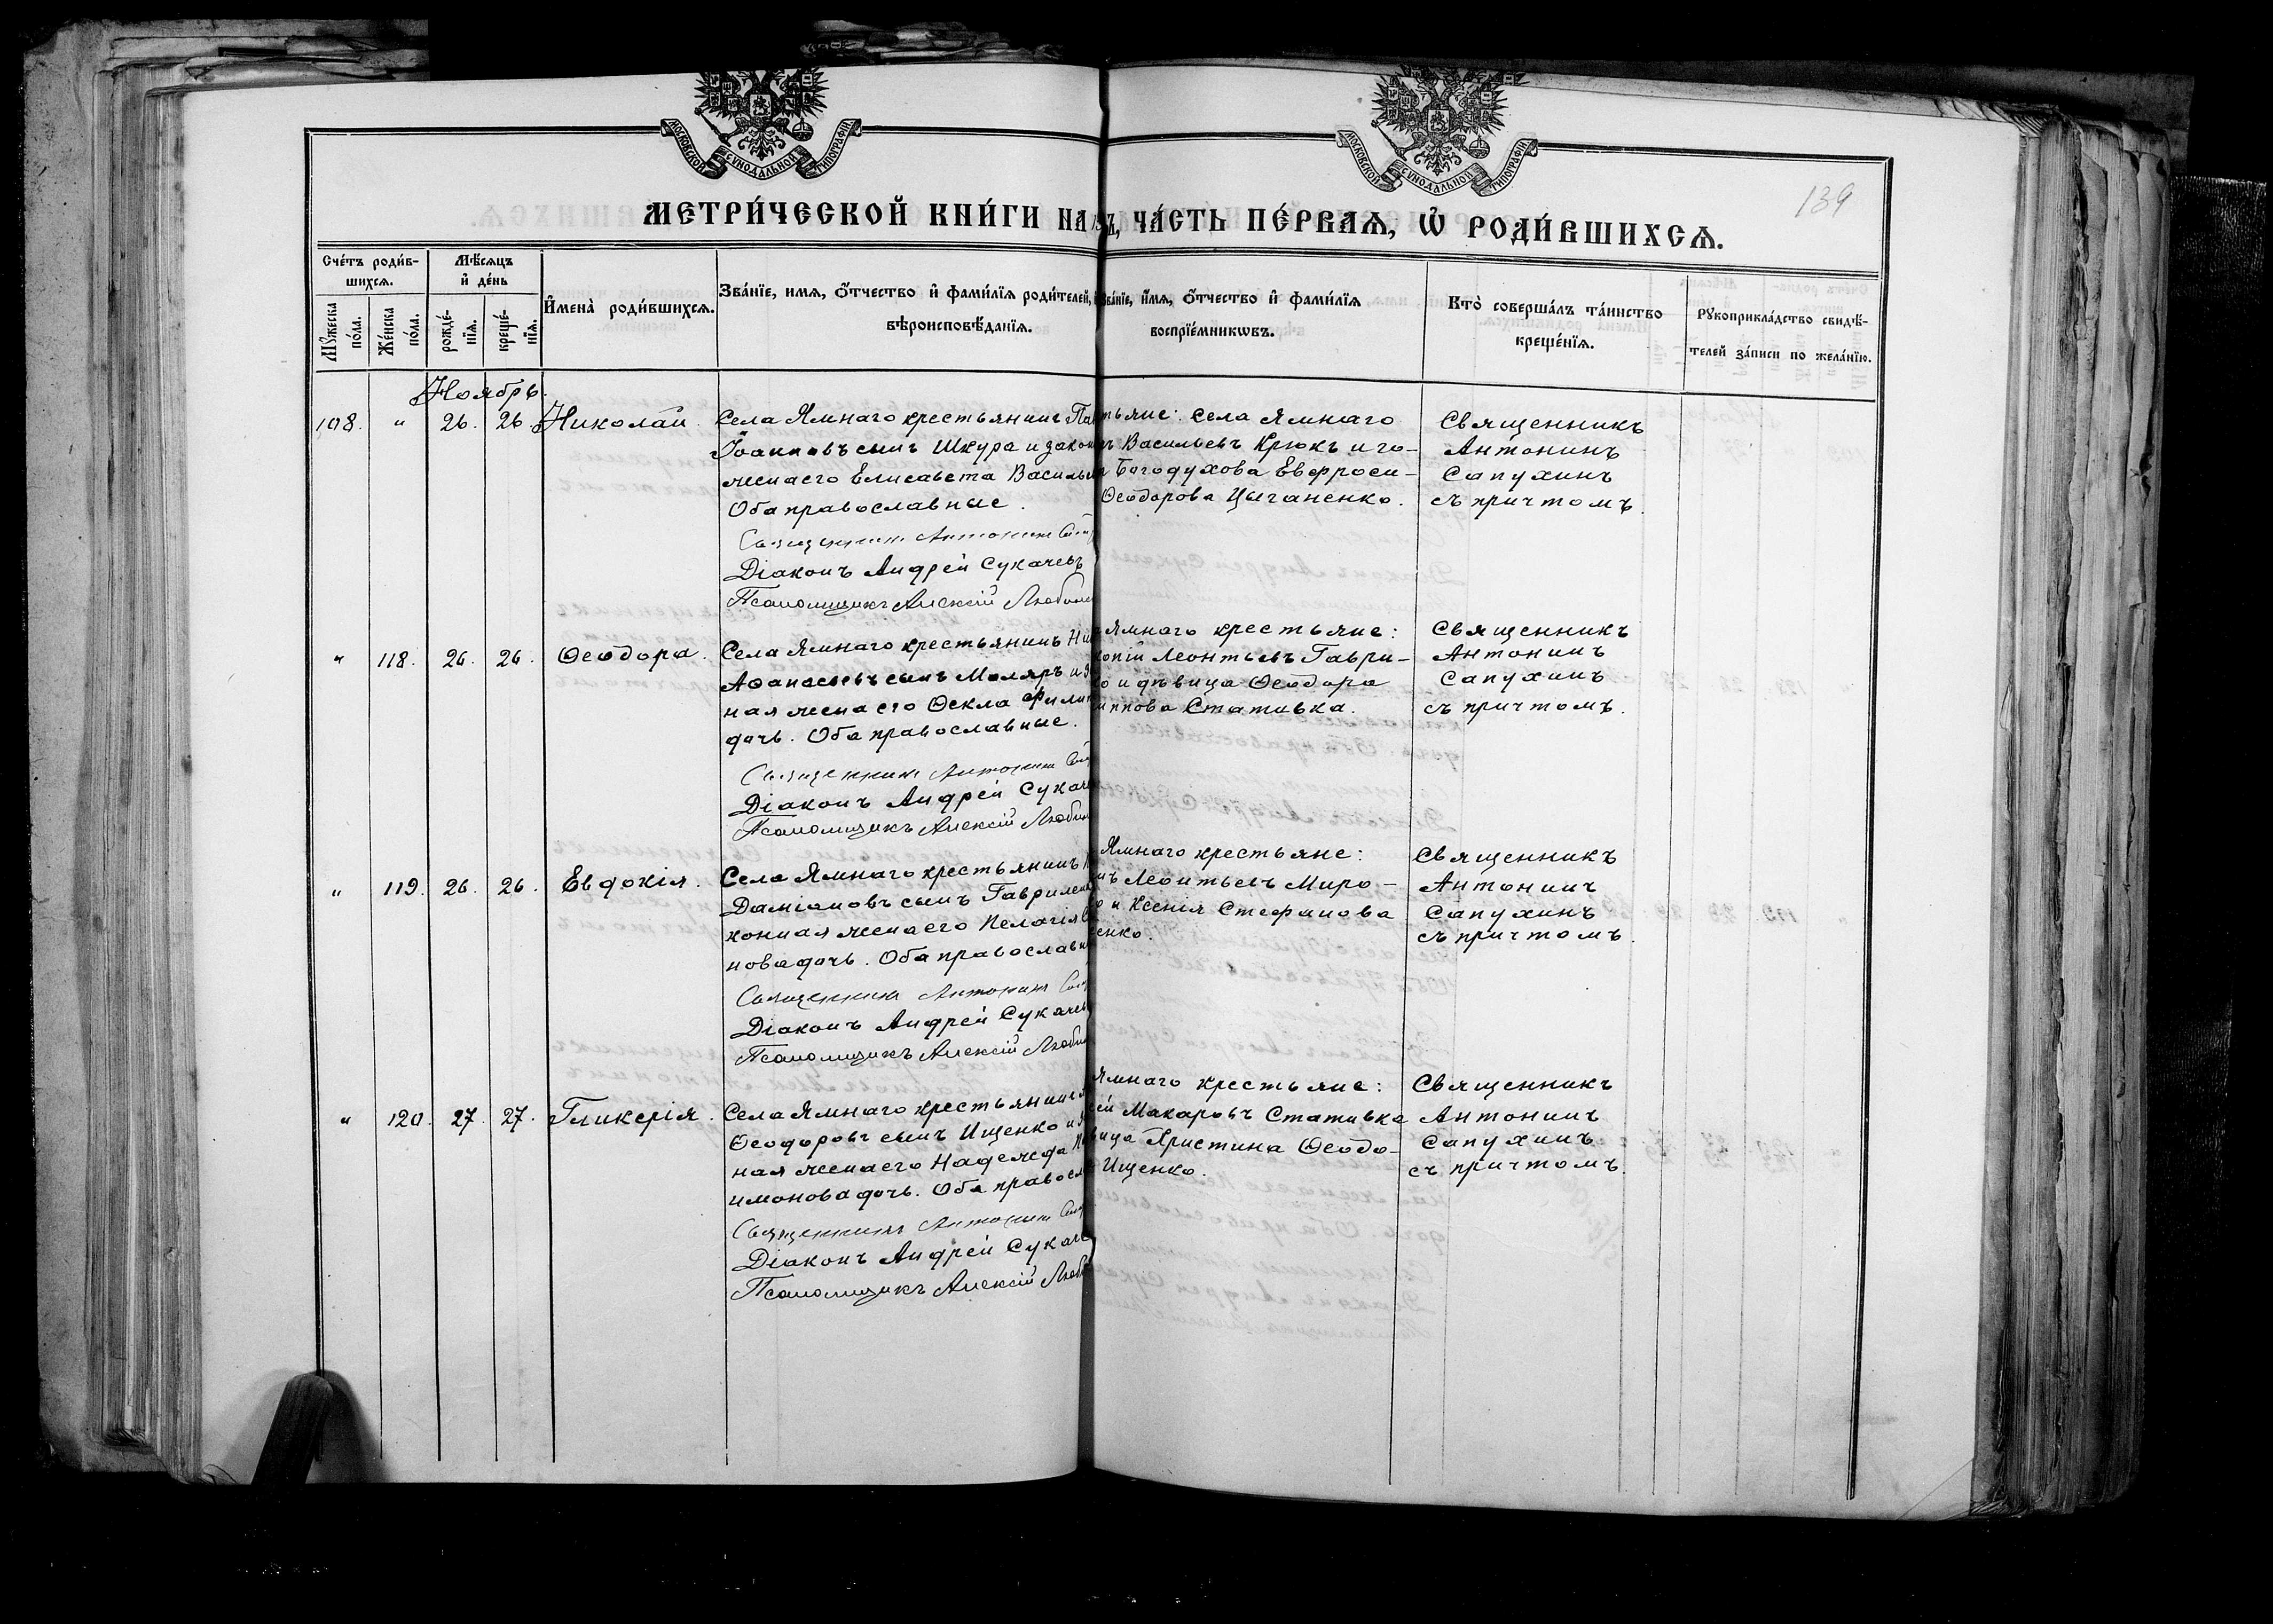 МОСКОВСКОЙ СУНОДАЛЬНОЙ ТИПОГРАФІИ
МОСКОВСКОЙ СУНОДАЛЬНОЙ ТИПОГРАФІИ
139
МЕТРИ́ЧЕСКОЙ КНИ́ГИ НА
ЧА́СТЬ ПЕ́РВАѦ, Ѡ҆ РОДИ́ВШИХСѦ.
Сче́тъ роди́в-
шихсѧ.
Мꙋ́жеска по́ла.
Же́нска по́ла.
Мѣ́сѧцъ
и҆ де́нь
рожде́-
нїѧ.
креще́-
нїѧ.
И҆мена̀ роди́вшихсѧ.
Зва́нїе, имѧ, ѻ҆́тчество и҆ фами́лїѧ роди́телей, и҆
вѣроисповѣ́данїѧ.
Зва́нїе, и҆́мѧ, ѻ҆́тчество и҆ фами́лїѧ
воспрїе́мникѡвъ.
Кто̀ соверша́лъ та́инство
креще́нїѧ.
Рꙋкоприкла́дство свидѣ́-
телей за́писи по жела́нїю.
Ноябрь.
108. " 26. 26. Николай.
Села Ямнаго крестьянинъ
Іоанновъ сынъ Шкура и
жена его Елисавета
Оба православные.
Священникъ Антонинъ
Діаконъ Андрей Сукачевъ
Псаломщикъ Алексій
села Ямнаго
Васильевъ Крюкъ и го-
Богодухова Евфроси-
Ѳеодорова Цыганенко.
Священникъ
Антонинъ
Сапухинъ
съ причтомъ.
" 118. 26. 26. Ѳеодора.
Села Ямнаго крестьянинъ
Аѳанасьевъ сынъ Моляръ и
ная жена его Ѳекла
дочь. Оба православные.
Священникъ Антонинъ
Діаконъ Андрей
Псаломщикъ Алексій
Ямнаго крестьяне:
Леонтьевъ Гаври-
и дѣвица Ѳеодора
Стативка.
Священникъ
Антонинъ
Сапухинъ
съ причтомъ.
" 119. 26. 26. Евдокія.
Села Ямнаго крестьянинъ
Даміановъ сынъ
конная жена его Пелагія
нова дочь. Оба
Священникъ Антонинъ
Діаконъ Андрей
Псаломщикъ Алексій
Ямнаго крестьяне:
Леонтьевъ Миро-
и Ксенія Стефанова
енко.
Священникъ
Антонинъ
Сапухинъ
съ причтомъ.
" 120. 27. 27. Гликерія.
Села Ямнаго крестьянинъ
Ѳеодоровъ сынъ Ищенко и
ная жена его Надежда
имонова дочь. Оба
Священникъ Антонинъ
Діаконъ Андрей
Псаломщикъ Алексій
Ямнаго крестьяне:
Макаровъ Стативка
Христина Ѳеодо-
Ищенко.
Священникъ
Антонинъ
Сапухинъ
съ причтомъ.